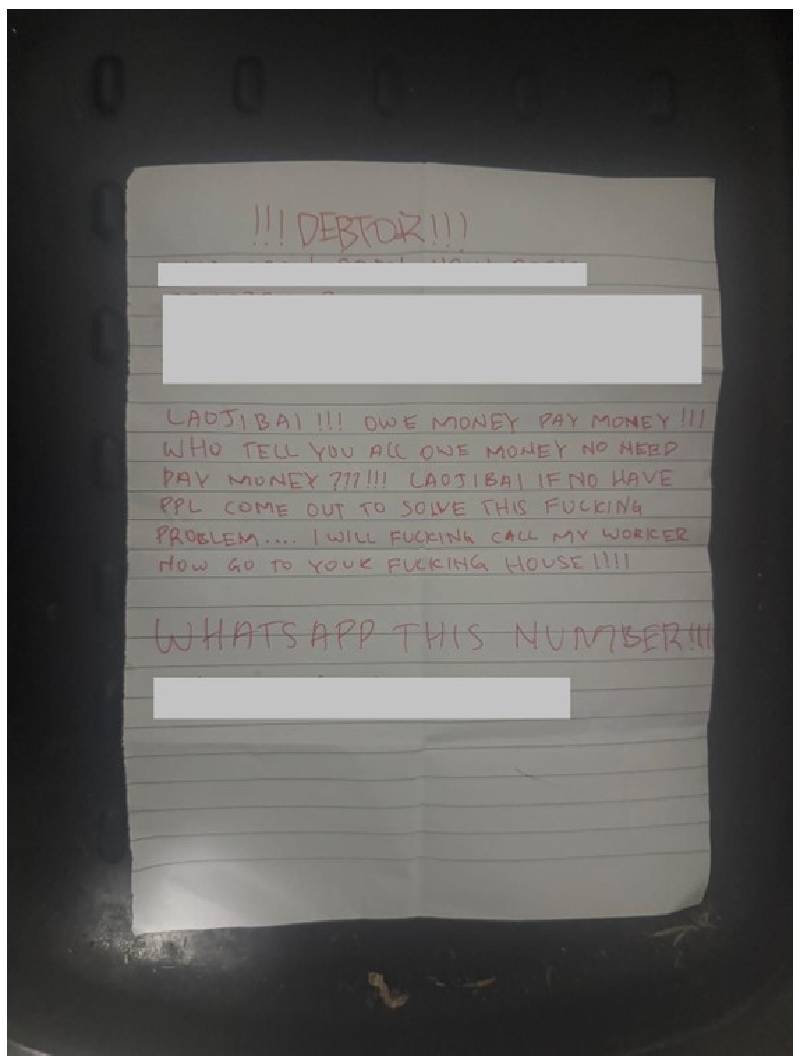 !!! DEBTOR !!!
LAOJIBAI !!! OWE MONEY PAY MONEY !!!
WHO TELL YOU ALL OWE MONEY NO NEED
PAY MONEY ???!!! LAOJIBAI IF NO HAVE
PPL COME OUT TO SOLVE THIS FUCKING
PROBLEM.... I WILL FUCKING CALL MY WORKER
NOW GO TO YOUR FUCKING HOUSE !!!!
WHATSAPP THIS NUMBER!!!!